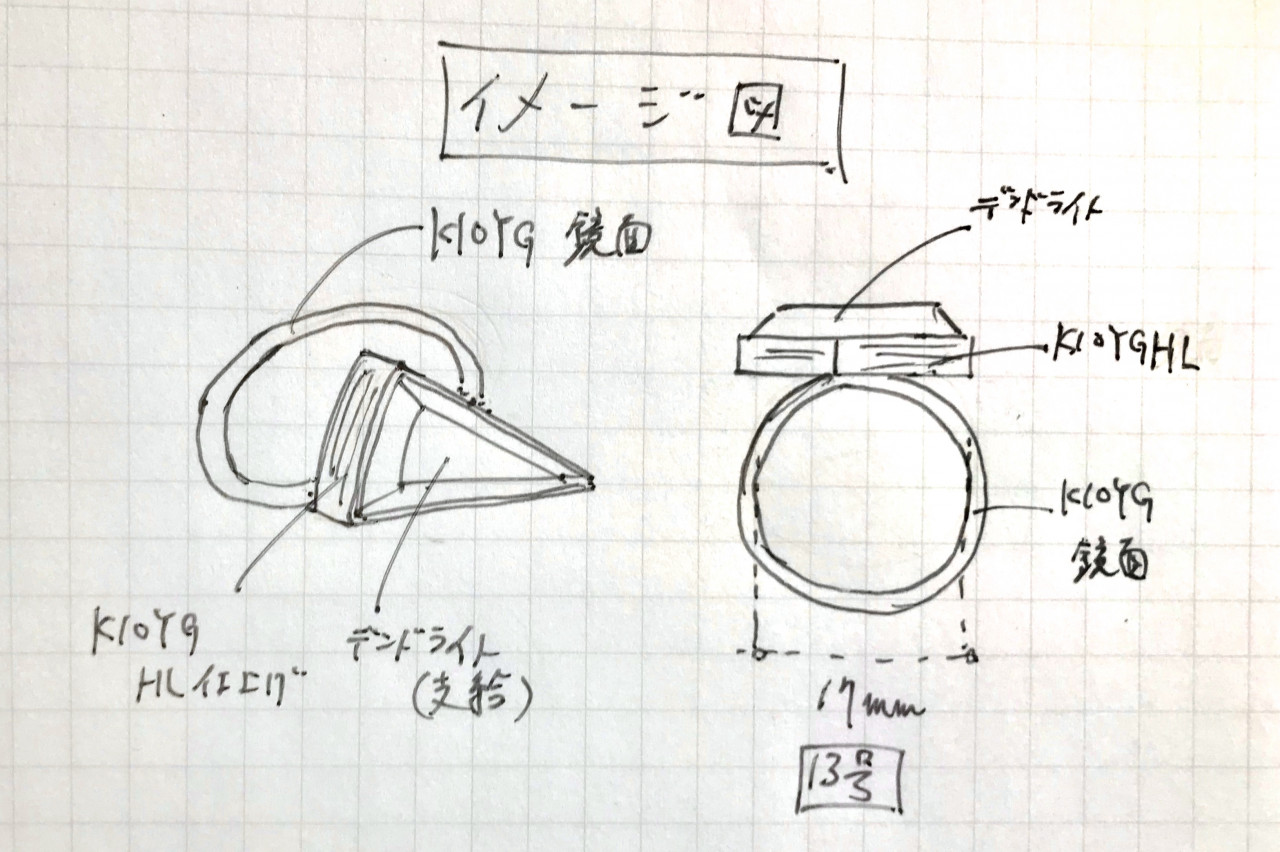 イメージ図
K10YG 鏡面
デンドライト
K10YGHL
K10YG
鏡面
K10YG
HL仕上げ
デンドライト
(支給)
17mm
13号